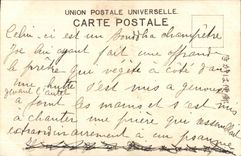 UNION POSTALE UNIVERSELLE.
CARTE POSTALE
Celui-ci est un Bouddha champêtre
Joe lui ayant fait une offrande
le prêtre qui végète à côté d'un
une hutte s'est mis a genoux
devant l'autel
a joint les mains et s'est mis
à chanter une prière qui ressemblait
extraordinairement à un psaume